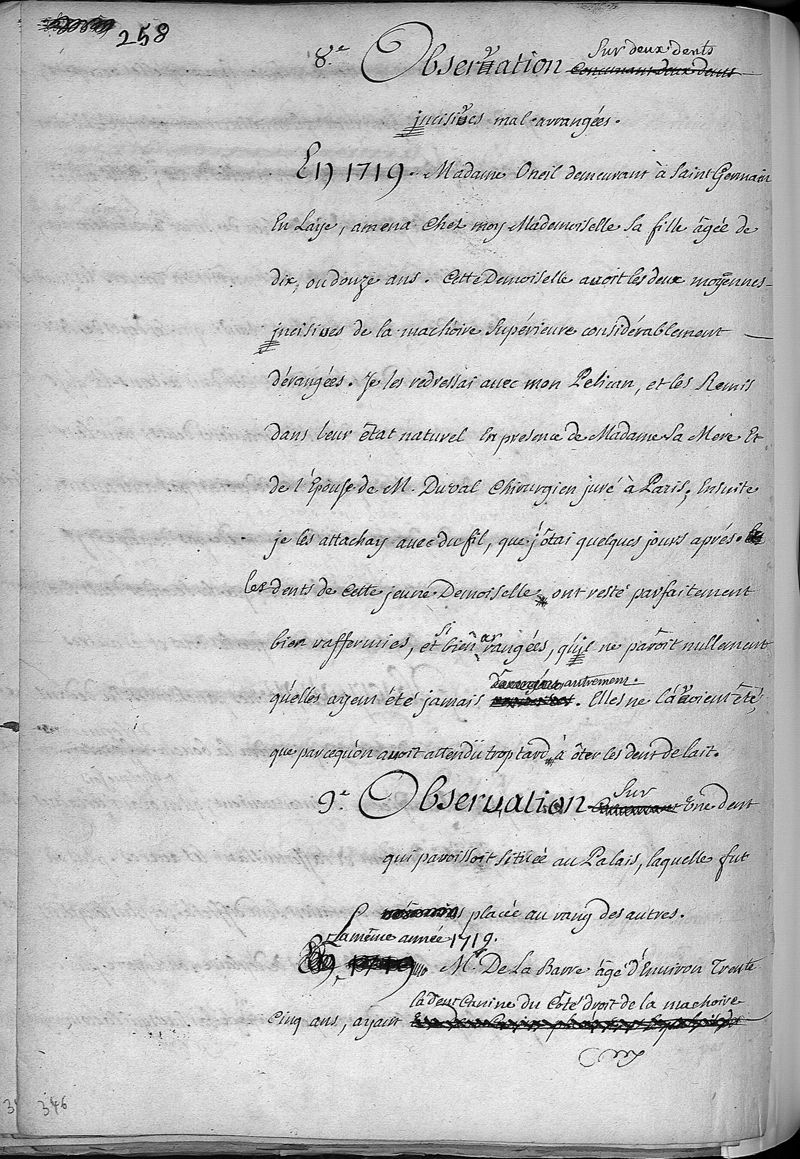 258
8.e Observation Sur deux dents
incisives mal arrangées.
En 1719. Madame Oneil demeurant à Saint Germain
En Laÿe, amena Chez moy Mademoiselle Sa fille âgée de
dix, ou douze ans. Cette Demoiselle avoit les deux moyennes
incisives de la machoire Supérieure considérablement
dérangées. Je les redressai avec mon Pelican, et les Remis
dans leur êtat naturel En presence de Madame Sa Mere Et
de l'Epouse de M. Duval Chirurgien juré à Paris, Ensuite
je les attachay avec du fil, que j'ôtai quelques jours aprés.
les dents de Cette jeune Demoiselle ont resté parfaitement
bien raffermies, et si bien arrangées, qu'il ne paroît nullement
qu'elles ayent été jamais autrement. Elles ne l'avoient êté,
que parcequ'on avoit attendu trop tard à ôter les dent de lait.
9.e Observation Sur Une dent
qui paroissoit située au Palais, laquelle fut
placée au rang des autres.
La même année 1719.
M.r De La Barre âgé d'Environ Trente
la dent Canine du Côté droit de la machoire
cinq ans, ayant
346